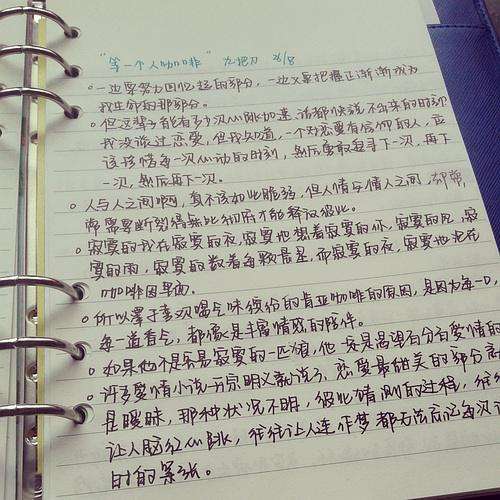 "等一个人咖啡" 九把刀
一边要努力回忆起的部分,一边又要把握正渐渐成为
我生命的那部分。
但这辈子能有多少次心跳加速、话都快说不出来的时刻
我没谈过恋爱,但我知道,一个对恋爱有信仰的人,应
该珍惜每一次心动的时刻,然后勇敢追寻下一次,再下
一次,然后再下一次。
人与人之间啊,真不该如此脆弱,但人情与情人之间,却常
常需要断裂得无比彻底才能释放彼此。
寂寞的我在寂寞的夜,寂寞地想着寂寞的你,寂寞的风,寂
寞的雨,寂寞的数着每颗星星,而寂寞的夜,寂寞地泡在
咖啡因里面。
所以泽于喜欢喝气味缤纷的肯亚咖啡的原因,是因为每一口,
每一道香气,都像是丰富情感的陪伴。
如果他不是容易寂寞的一匹狼,他一定是渴望百分百爱情的
许多爱情小说开宗明义就说了,恋爱最甜美的部分就
是暧昧,那种状况不明,彼此猜测的过程,往往
让人脸红心跳,往往让人连作梦都无法忘记每次
时的紧张。